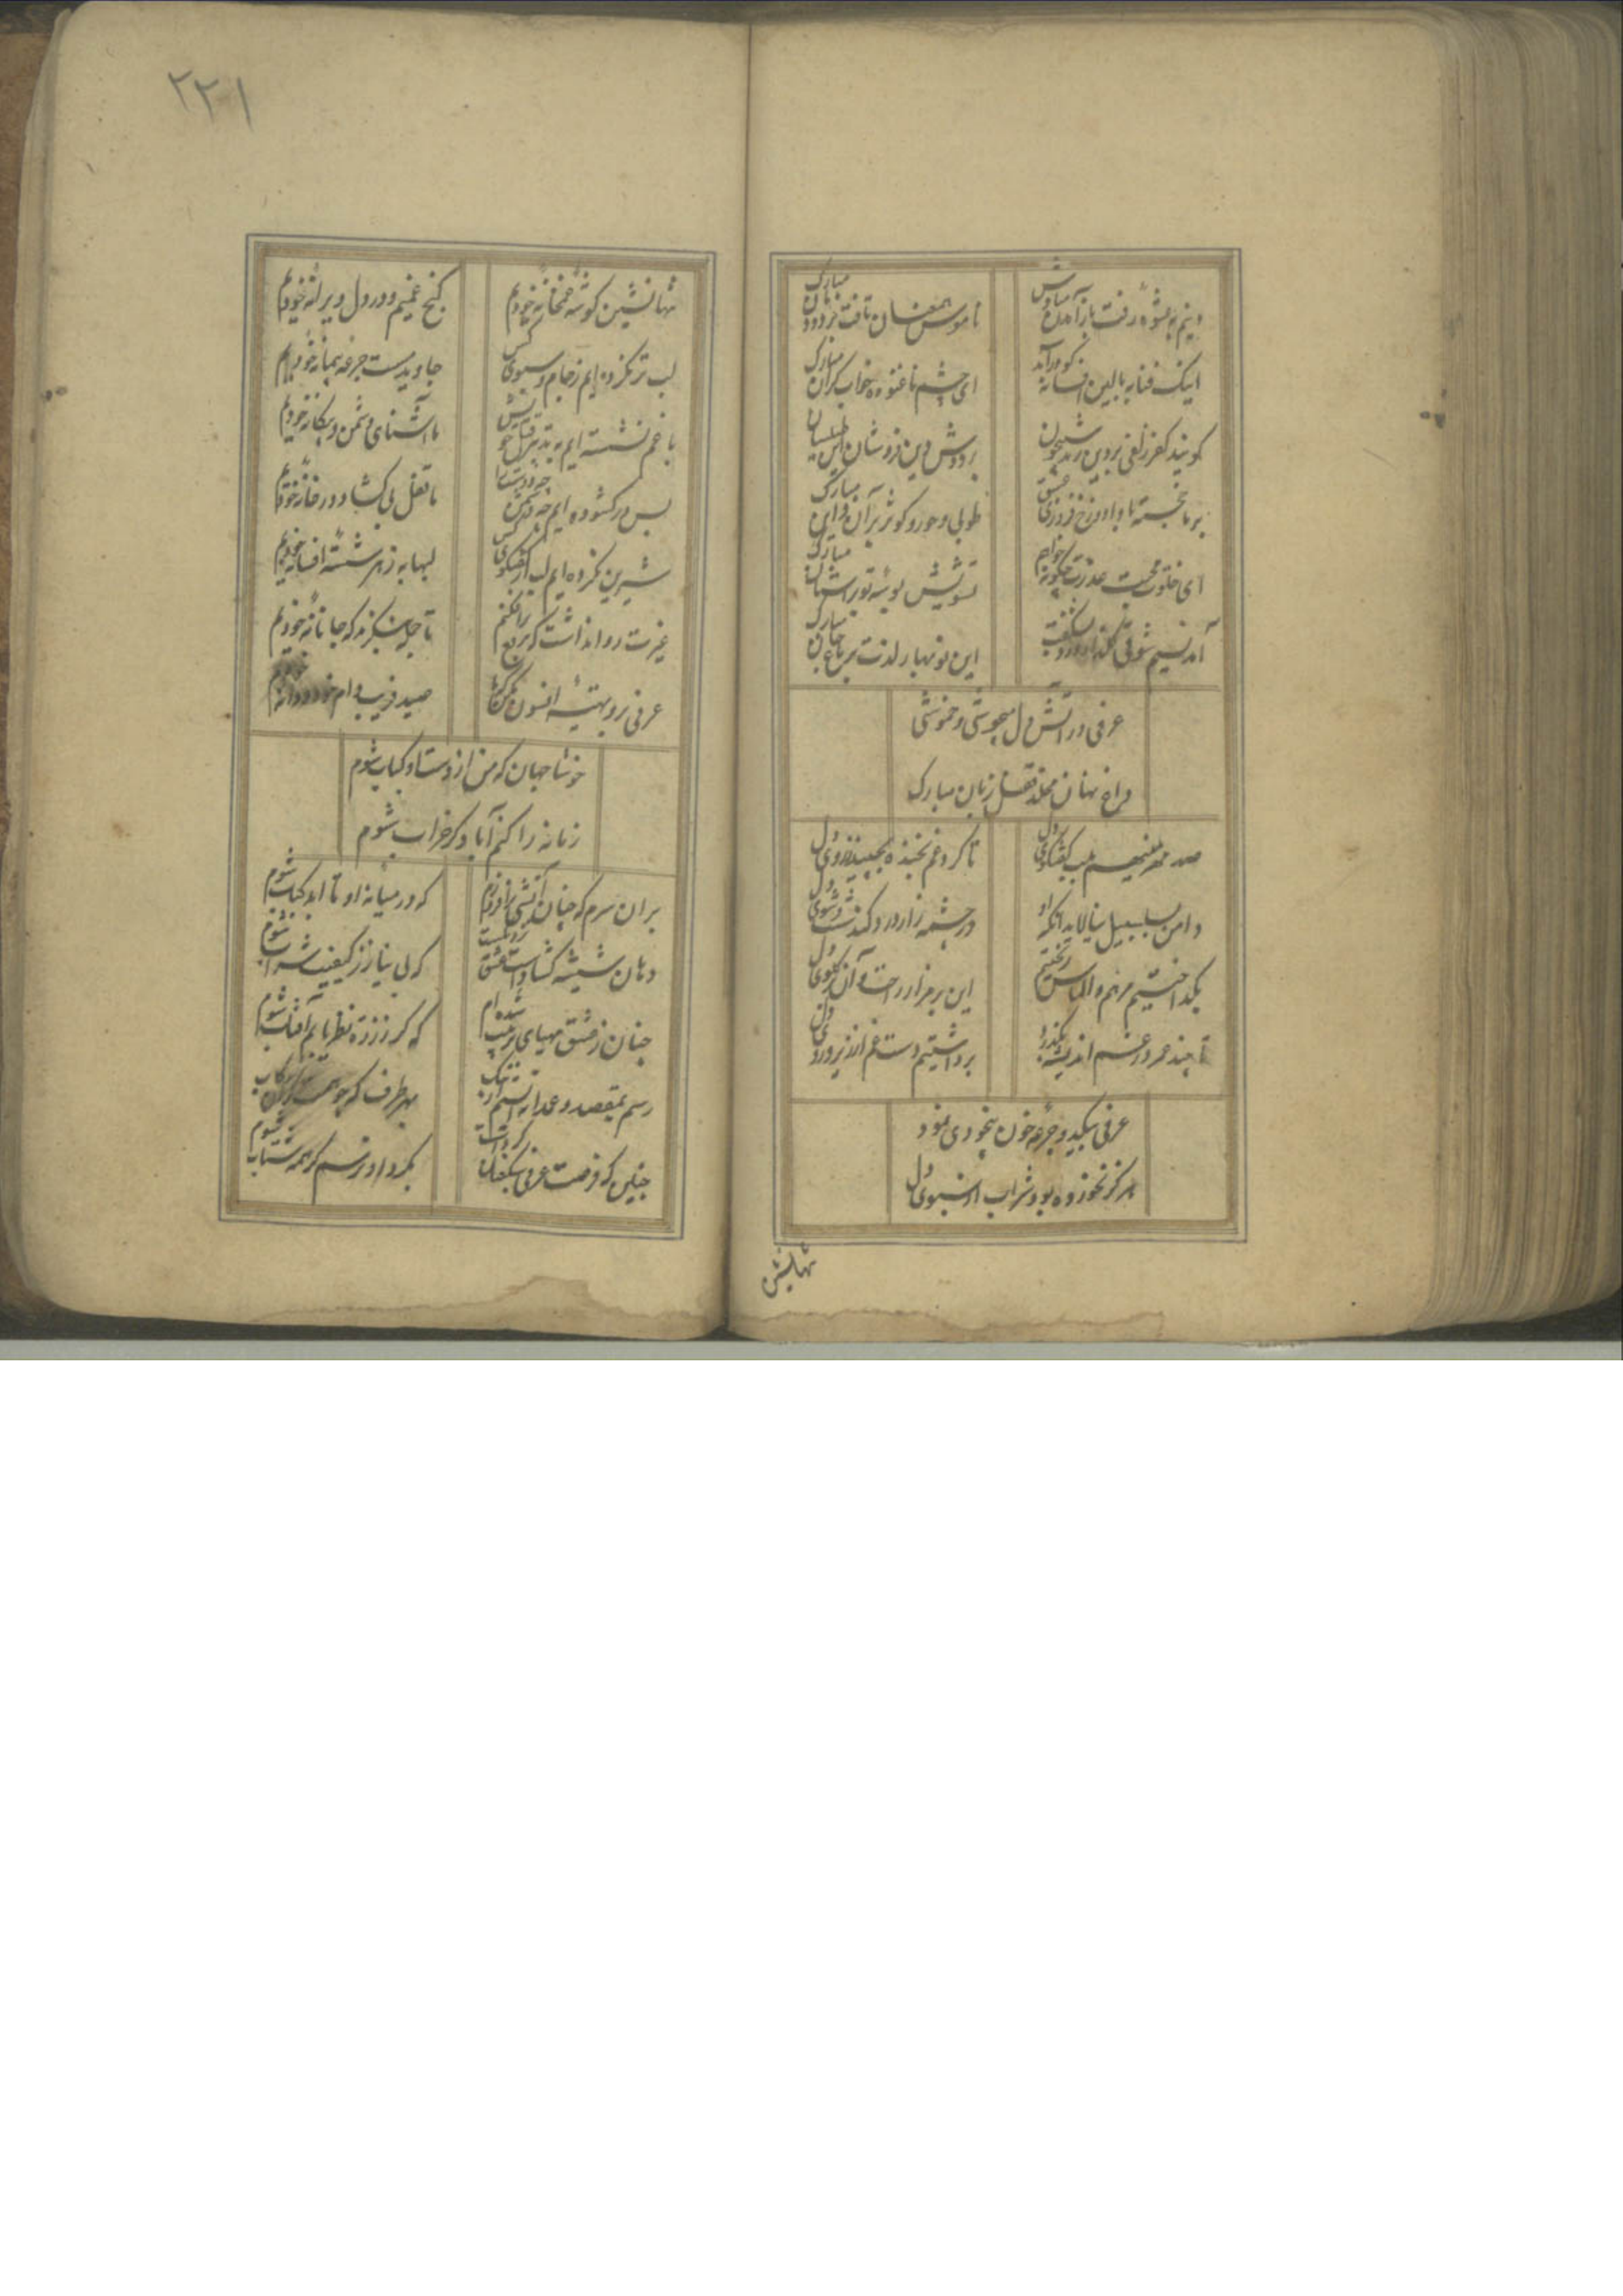 دینم بعشوه رفت باز آمدن مبادش
ناموس تافت بر دودمان مبارک
اینک فنا به بالین افسانه گو درآمد
ای چشم ناغنوده خواب گران مبارک
گویند کفر زلفی بر دین زد شبیخون
بر دوش دین فروشان این طیلسان مبارک
بر ما خجسته بادا دوزخ فروزی عشق
طوبی و حور و کوثر بر آن و این مبارک
ای خلوت محبت عذرت چگونه خواهم
تشویش
آمد نسیم شوقی
این نوبهار لذت بر باغ جان مبارک
عرفی در آتش دل میجوش و خموشی
داغ نهان مخلد قفل زبان مبارک
صد مهر مینهیم بلب گفتگوی دل
تا گرد غم بخنده نچیند ز روی دل
دامن بسلسبیل نیالاید آنکه او
در چشمه زار درد کند شست و شوی دل
بگداختیم مرهم و الماس ریختیم
این بر مزار راحت و آن در گلوی دل
تا چند عمر در غم اندیشه بگذرد
برداشتیم دست غم از آرزوی دل
عرفی مکید و جرعه خون بیخودی نمود
هرگز نخورده بود شراب از سبوی دل
تنها نشین
۲۲۱
تنها نشین گوشه غمخانه خودیم
گنج غمیم و در دل ویرانه خودیم
لب تر نکرده ایم ز جام و سبوی کس
جاوید مست جرعه پیمانه خودیم
با خم نشسته ایم به تدبیر قتل خویش
ما آشنای دشمن و بیگانه خودیم
بس در گشوده ایم چه دشمن چه دوست را
ما قفل بی گشاد در خانه خودیم
شیرین نکرده ایم لب از گفتگوی کس
لبها به زهر شسته افسانه خودیم
غیرت روا نداشت که برقع برافکنم
تا حال ننگرند که جانانه خودیم
عرفی برو بهیهشه افسون
صید فریب دام خود و دانه خودیم
خوشا جهان که من از دست او کباب شوم
زمانه را کنم آباد گر خراب شوم
بر آن سرم که چنان آتشی برافروزم
که در میانه او تا ابد کباب شوم
دهان شیشه گشاد است عشق
که بی نیاز ز کیفیت شراب شوم
چنان ز عشق مهیای تربیت شده ام
که گر ز ذره نظر یابم آفتاب شوم
رسم بمقصد و
بهر طرف که
چنین که فرصت عرفی
بگرد او نرسم گر همه شتاب شوم